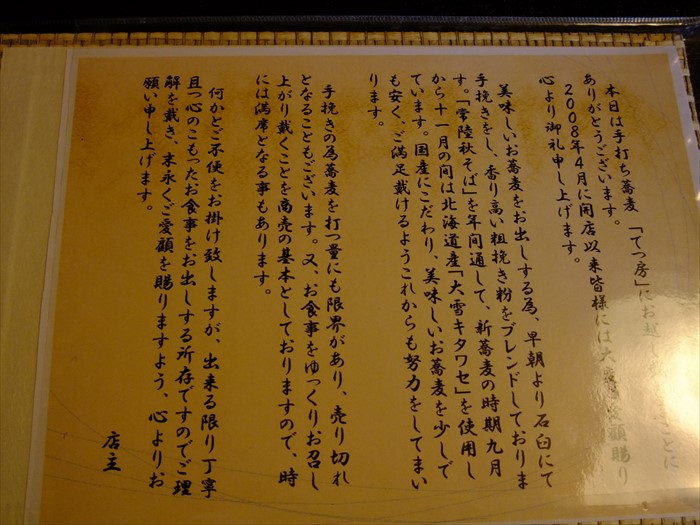 本日は手打ち蕎麦「てつ房」にお越し
ありがとうございます。
２００８年４月に開店以来皆様には大変ご愛顧賜り
心より御礼申し上げます。
美味しいお蕎麦をお出しする為、早朝より石臼にて
手挽きをし、香り高い粗挽き粉をブレンドしておりま
す。「常陸秋そば」を年間通して、新蕎麦の時期九月
から十一月の間は北海道産「大雪キタワセ」を使用し
ています。国産にこだわり、美味しいお蕎麦を少しで
も安く、ご満足戴けるようこれからも努力をしてまい
ります。
手挽きの為蕎麦を打つ量にも限界があり、売り切れ
となることもございます。又、お食事をゆっくりお召し
上がり戴くことを商売の基本としておりますので、時
には満席となる事もあります。
何かとご不便をお掛け致しますが、出来る限り丁寧
且つ心のこもったお食事をお出しする所存ですのでご理
解を戴き、末永くご愛顧を賜りますよう、心よりお
願い申し上げます。
店主